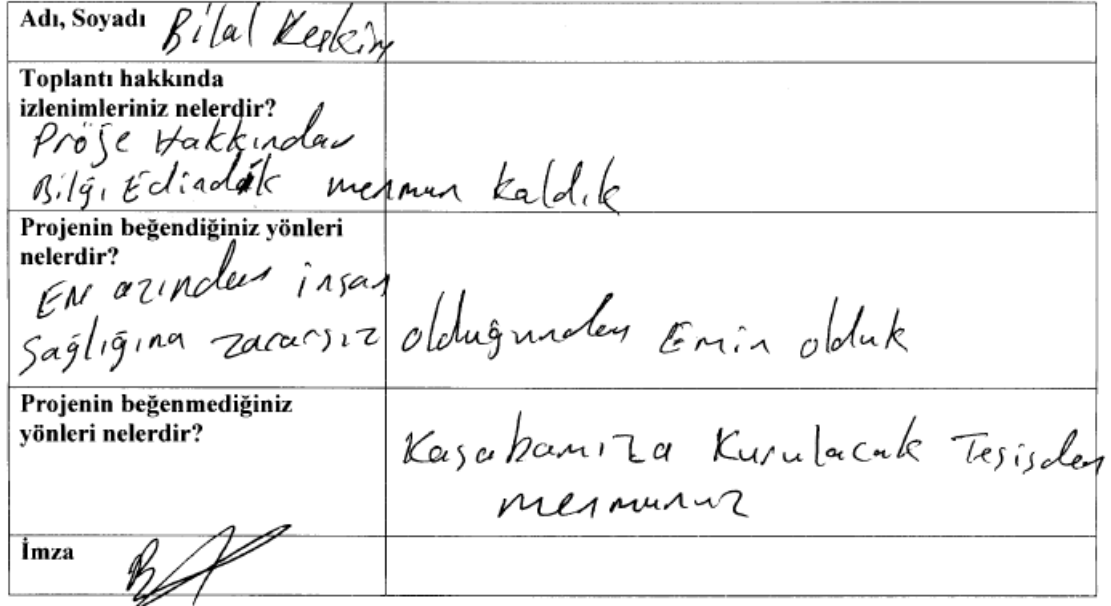 Adı, Soyadı Bilal Keskin
Toplantı hakkında
izlenimleriniz nelerdir?
Pröje Hakkından
Bilği Edindik memnun kaldık
Projenin beğendiğiniz yönleri
nelerdir?
EN azından insan
Sağlığına zararsız olduğundan Emin olduk
Projenin beğenmediğiniz
yönleri nelerdir?
Kasabamıza Kurulacak Tesisden
memnunuz
İmza